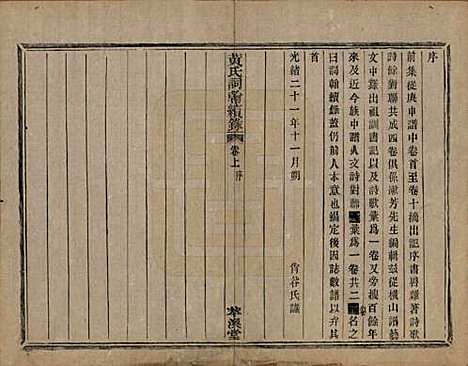 序
前集從庚申譜中卷首至卷十摘出記序書與雜著詩歌
詩餘對聯共成四卷俱係漱芳先生編輯茲從橫山譜藝
文中錄出祖訓書記以及詩歌彙為一卷又旁搜百餘年
來及近今族中譜人文詩對聯 彙為一卷共二 名之
曰詞翰續錄蓋仍前人本意也攝定後因誌數語以弁其
首
光緒二十一年十一月朔 谷氏謹
黃氏詞翰續錄 卷上 序
萃渙堂